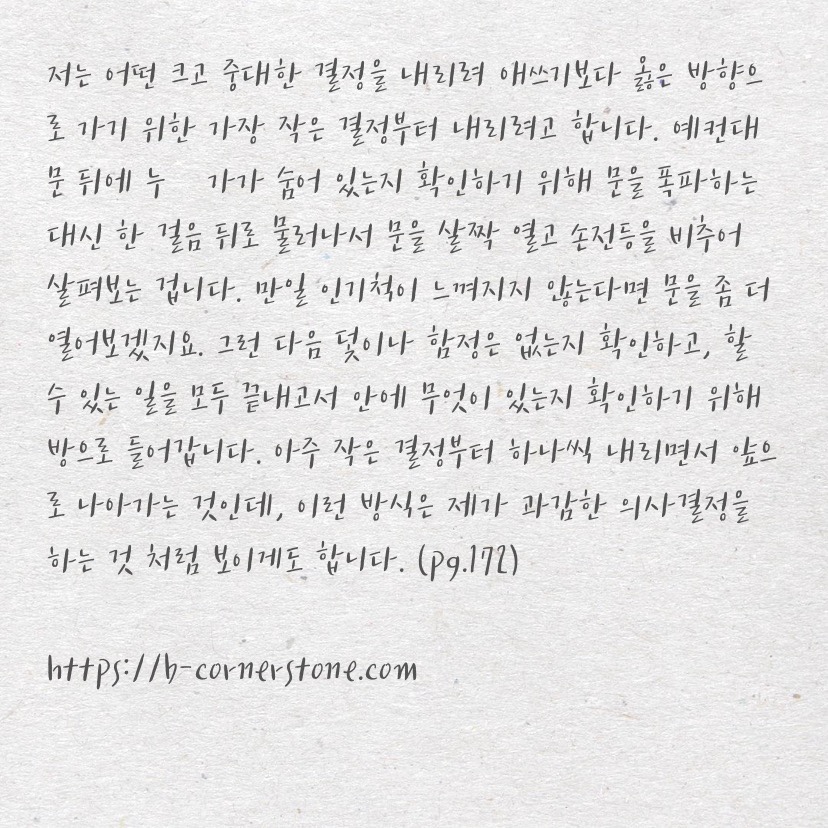 저는 어떤 크고 중대한 결정을 내리려 애쓰기보다 옳은 방향으
로 가기 위한 가장 작은 결정부터 내리려고 합니다. 예컨대
문 뒤에 누 가가 숨어 있는지 확인하기 위해 문을 폭파하는
대신 한 걸음 뒤로 물러나서 문을 살짝 열고 손전등을 비추어
살펴보는 겁니다. 만일 인기척이 느껴지지 않는다면 문을 좀 더
열어보겠지요. 그런 다음 덫이나 함정은 없는지 확인하고, 할
수 있는 일을 모두 끝내고서 안에 무엇이 있는지 확인하기 위해
방으로 들어갑니다. 아주 작은 결정부터 하나씩 내리면서 앞으
로 나아가는 것인데, 이런 방식은 제가 과감한 의사결정을
하는 것 처럼 보이게도 합니다. (pg.172)
https://b-cornerstone.com